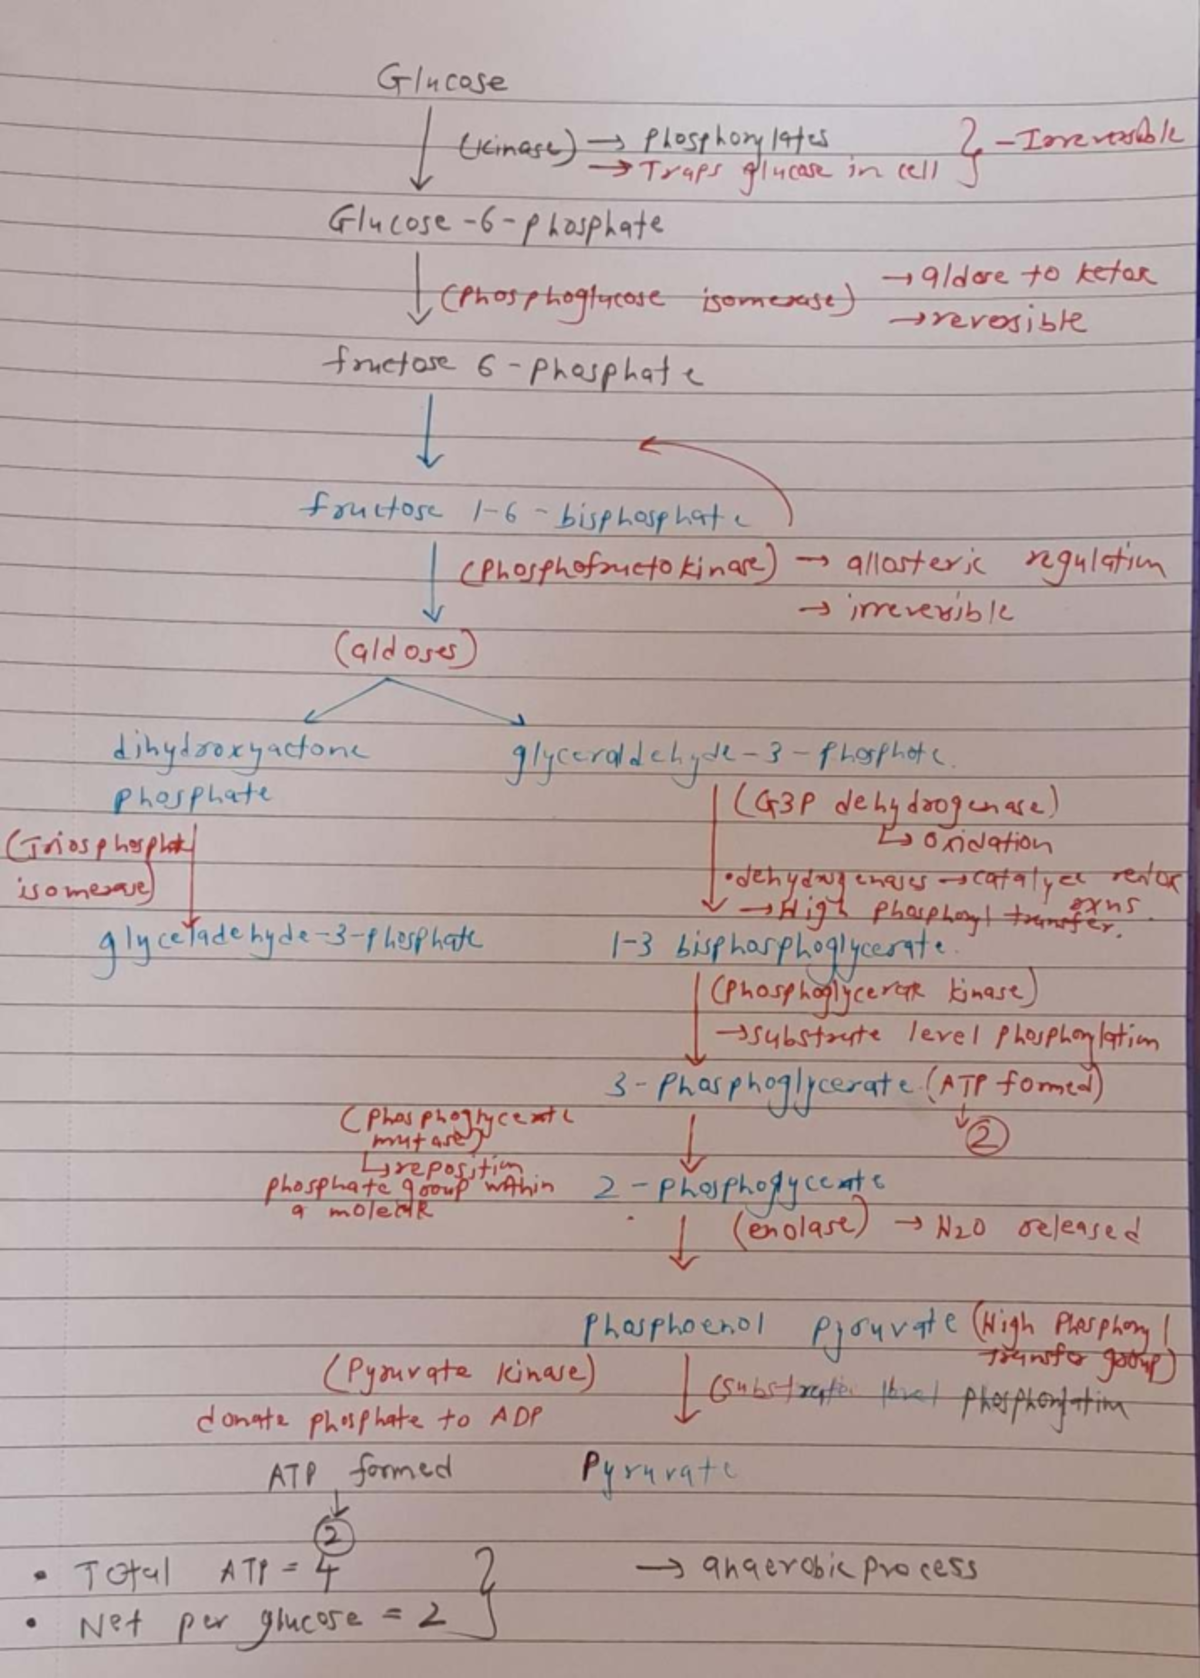 Glucose
(kinase) → Phosphorylates
→ Traps glucose in cell } - Irreversible
Glucose-6-phosphate
(Phosphoglucose isomerase) → aldose to ketose
→ reversible
fructose 6-phosphate
fructose 1-6-bisphosphate
(Phosphofructokinase) → allosteric regulation
→ irreversible
(aldoses)
dihydroxyactone
phosphate
glyceraldehyde-3-phosphate.
(G3P dehydrogenase)
↳ oxidation
(Triosphosphate
isomerase)
• dehydrogenases → catalyze redox
rxns.
→ High phosphoryl transfer.
glyceladehyde-3-phosphate
1-3 bisphosphoglycerate.
(phosphoglycerate kinase)
→ substrate level phosphorylation
3-phosphoglycerate (ATP formed)
②
(phosphoglycerate
mutase)
↳ reposition
phosphate group within
a molecule
2-phosphoglycerate
(enolase) → H2O released
phosphoenol pyruvate (High Phosphoryl
transfer group)
(Pyruvate kinase)
(substrate level phosphorylation
donate phosphate to ADP
ATP formed
Pyruvate
②
• Total ATP = 4
→ anaerobic process
• Net per glucose = 2